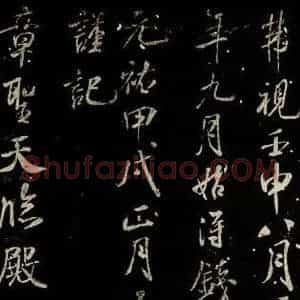 視壬申八月
年九月始得錢
元祐甲戌正月
謹記
章聖天臨殿
Shufaziliao.COM